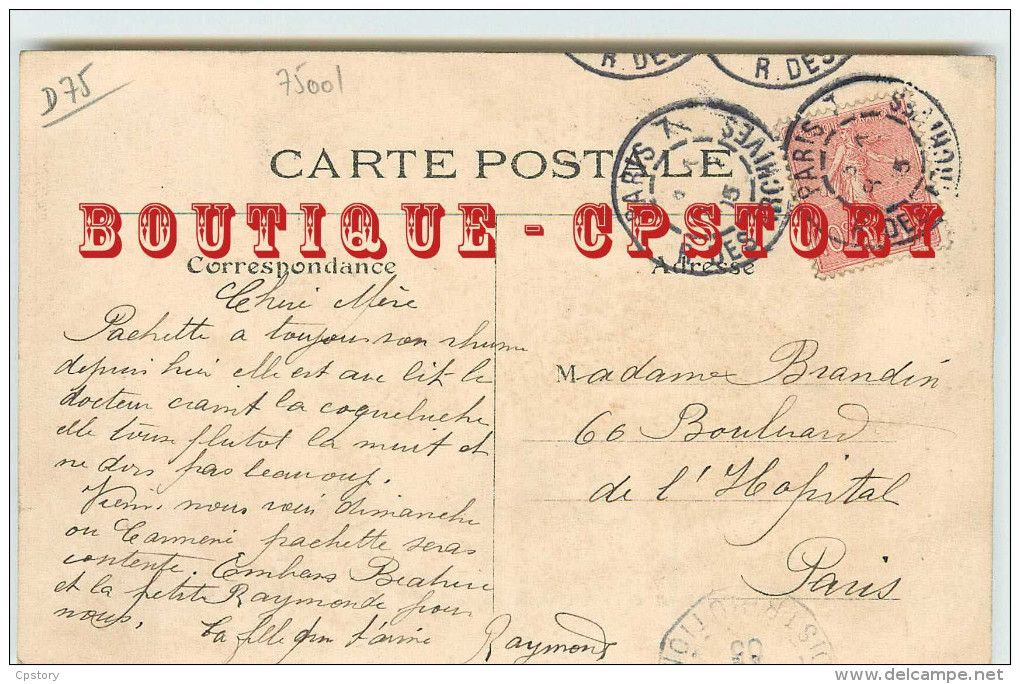 D75
75001
R. DES
R. DES
PARIS
R. DES ARCHIVES
PARIS
R. DES ARCHIVES
CARTE POSTALE
BOUTIQUE - CPSTORY
Correspondance
Adresse
Chère Mère
Pachette a toujours son rhume
depuis hier elle est au lit le
docteur craint la coqueluche
elle touse plutot la nuit et
ne dors pas beaucoup.
Viens nous voir dimanche
ou pachette seras
contente. Embrass Beatrice
et la petite Raymonde pour
nous.
Ta fille qui t'aime
Raymond
Madame Brandin
66 Boulevard
de l'Hopital
Paris
Cpstory
delcampe.net